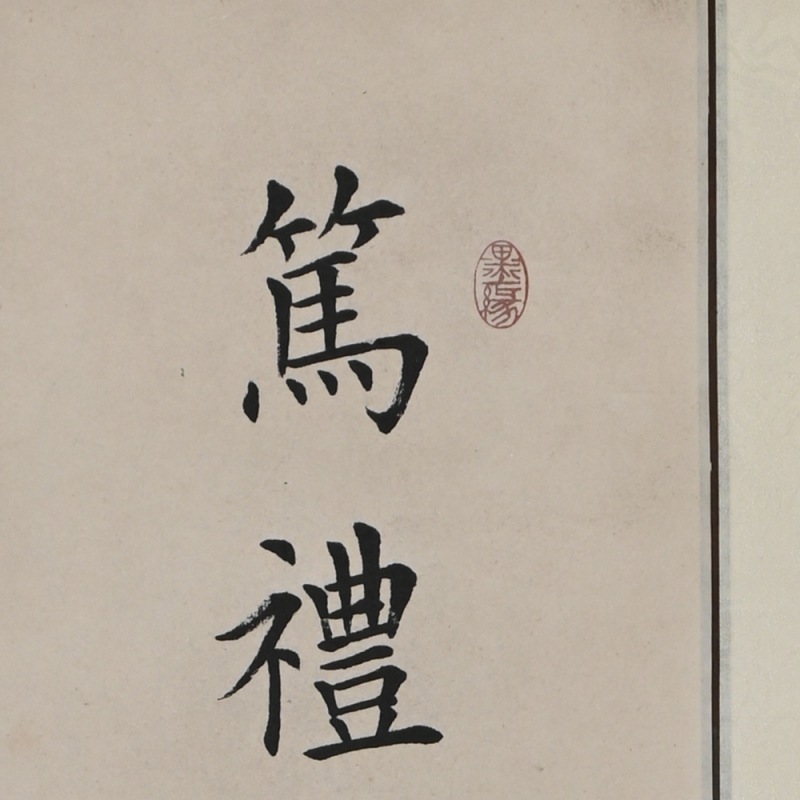 篤禮
墨緣